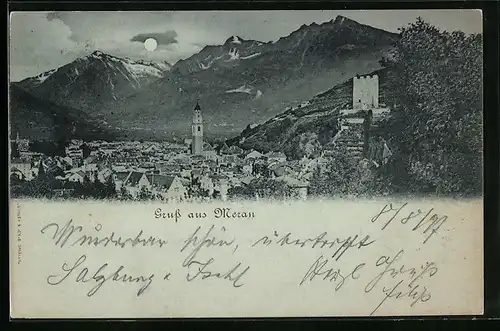 Gruß aus Meran
8/8/97
Wunderbar schön, übertrifft
Salzburg & Ischl
Herzl Gruß